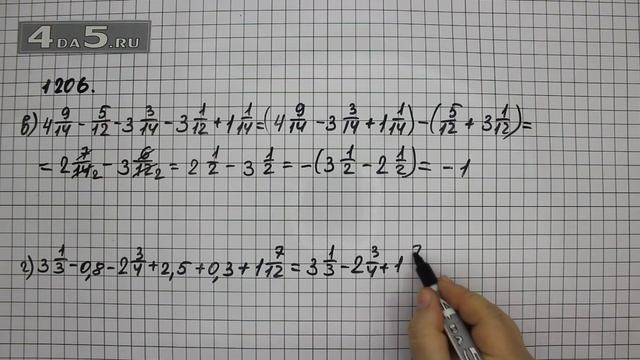 4DA5.RU
1206.
в) 4 9/14 - 5/12 - 3 3/14 - 3 1/12 + 1 1/14 = (4 9/14 - 3 3/14 + 1 1/14) - (5/12 + 3 1/12) =
= 2 7/14 2 - 3 6/12 2 = 2 1/2 - 3 1/2 = -(3 1/2 - 2 1/2) = -1
г) 3 1/3 - 0,8 - 2 3/4 + 2,5 + 0,3 + 1 7/12 = 3 1/3 - 2 3/4 + 1